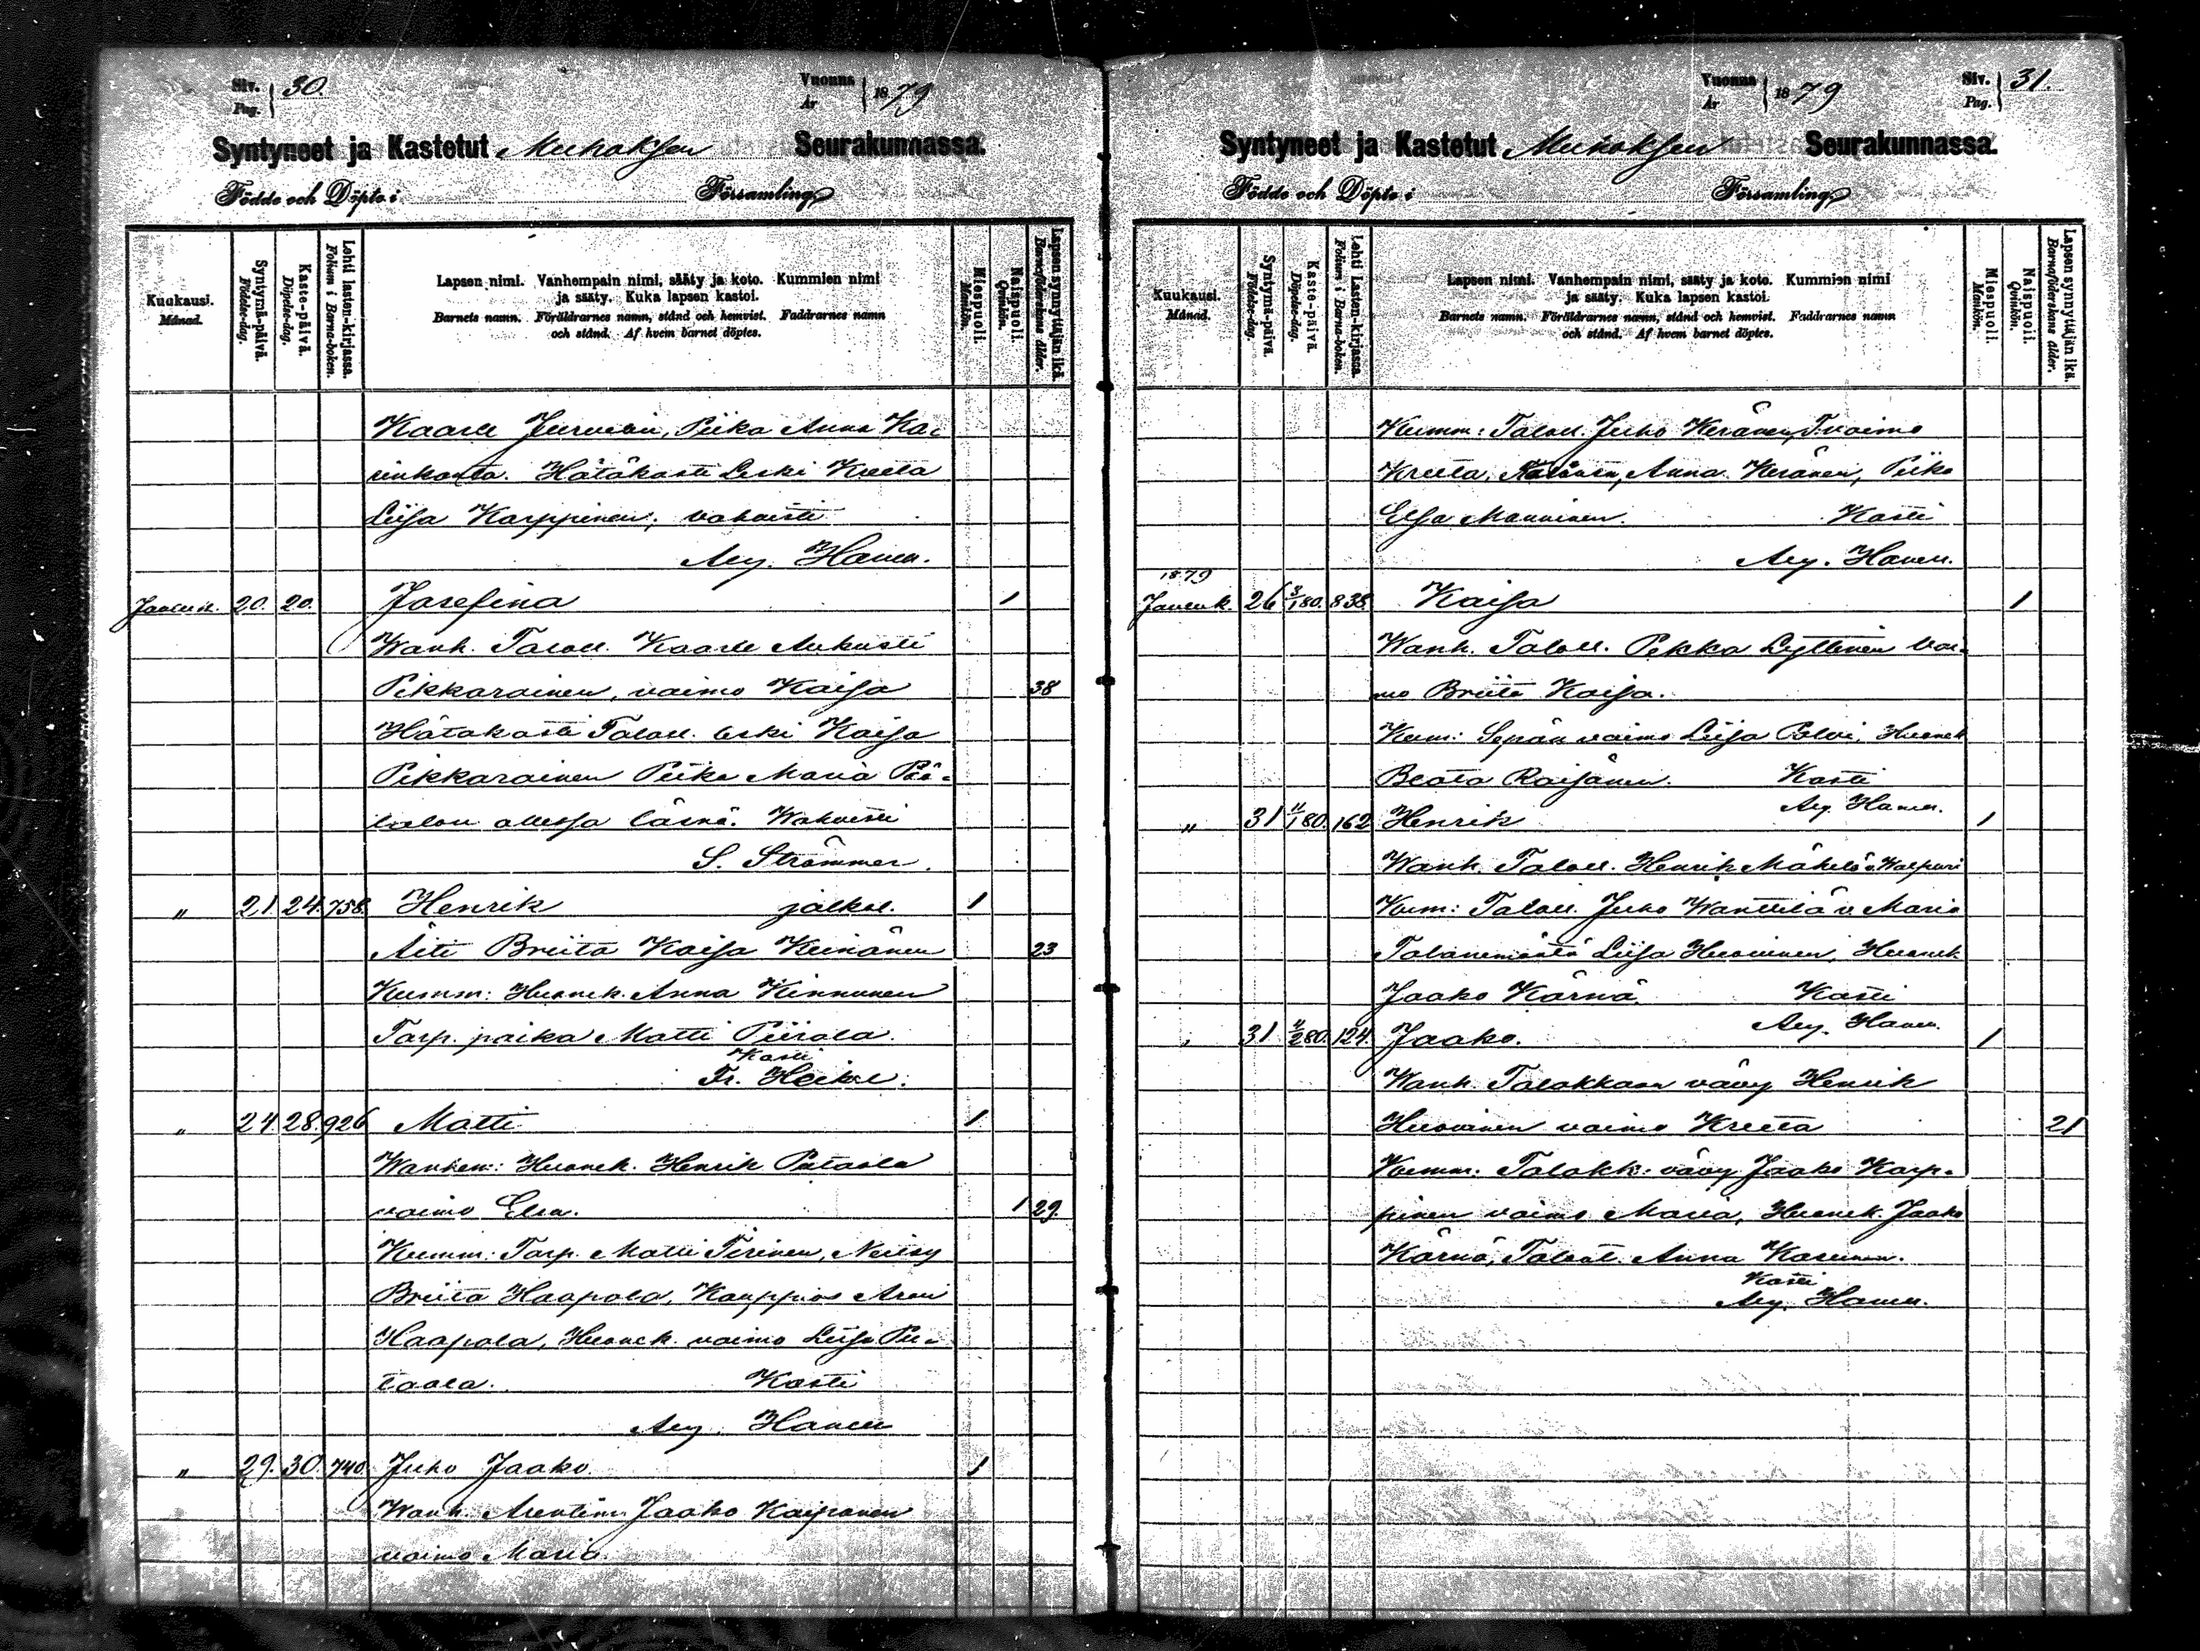 Siv. 30.
Pag.
Vuonna 1879
År
Syntyneet ja Kastetut Muhoksen Seurakunnassa.
Födde och Döpte i Församling
Kuukausi. Månad.
Syntymä-päivä. Födelse-dag.
Kaste-päivä. Döpelse-dag.
Lehti lasten-kirjassa. Folium i Barna-boken.
Lapsen nimi. Vanhempain nimi, sääty ja koto. Kummien nimi
ja sääty. Kuka lapsen kastoi.
Barnets namn. Föräldrarnes namn, stånd och hemvist. Faddrarnes namn
och stånd. Af hvem barnet döptes.
Miespuoli. Mankön.
Naispuoli. Qvinkön.
Lapsen synnyttäjän ikä. Barnaföderskans ålder.
Kaarle Piika Anna Ka-
Hätäkasti Leski Kreeta
Liisa Karppinen, vahvisti
Hanell.
Jouluk. 20. 20. Josefina 1
Wanh. Taloll. Kaarle Aukusti
Pikkarainen, vaimo Kaisa 38
Hätäkasti Taloll. leski Kaisa
Pikkarainen Piika Maria Pää-
talon ollessa läsnä. Wahvisti
S. Strömmer.
" 21. 24. 758. Henrik jalkol. 1
Äiti Briita Kaisa Keinänen 23
Kumm: Huonek. Anna Kinnunen
Torp. poika Matti Piirola.
Kasti
Fr. Heikel.
" 24 28. 926 Matti 1
Wanhem: Huonek. Henrik Pietaola
vaimo Elsa. 1 29.
Kumm: Torp. Matti Tirinen, Neitsy
Briita Haapola, Kauppias
Haapola, Huonek. vaimo Liisa Pie-
taola. Kasti
Hanell
" 29. 30. 740. Juho Jaako. 1
Wanh. Jaako
vaimo Maria.
Vuonna 1879
År
Siv. 31.
Pag.
Syntyneet ja Kastetut Muhoksen Seurakunnassa.
Födde och Döpte i Församling
Kuukausi. Månad.
Syntymä-päivä. Födelse-dag.
Kaste-päivä. Döpelse-dag.
Lehti Lasten-kirjassa. Folium i Barna-boken.
Lapsen nimi. Vanhempain nimi, sääty ja koto. Kummien nimi
ja sääty. Kuka lapsen kastoi.
Barnets namn. Föräldrarnes namn, stånd och hemvist. Faddrarnes namn
och stånd. Af hvem barnet döptes.
Miespuoli. Mankön.
Naispuoli. Qvinkön.
Lapsen synnyttäjän ikä. Barnaföderskans ålder.
Kumm: Taloll. Juho Keränen, T. vaimo
Kreeta, Anna Keränen, Piika
Elsa Manninen. Kasti
Hanell.
1879
Jouluk. 26 3/1 80. 838. Kaisa 1
Wanh. Taloll. Pekka Lyttinen vai-
mo Briita Kaisa.
Kum: Sepän vaimo Liisa Polvi, Huonek
Beata Kasti
Hanell.
" 31 11/1 80. 162 Henrik 1
Wanh. Taloll. Henrik Mäkelä v. Walpuri
Kum: Taloll. Juho Wanttila v. Maria
Liisa Huovinen, Huonek
Jaako Kärnä. Kasti
Hanell.
" 31 11/2 80. 124. Jaako. 1
Wanh. Talokkaan vävy Henrik
Huovinen vaimo Kreeta 21
Kumm: Talokk. vävy Jaako Karp-
pinen vaimo Maria, Huonek. Jaako
Kärnä, Anna Kasurinen.
Kasti
Hanell.